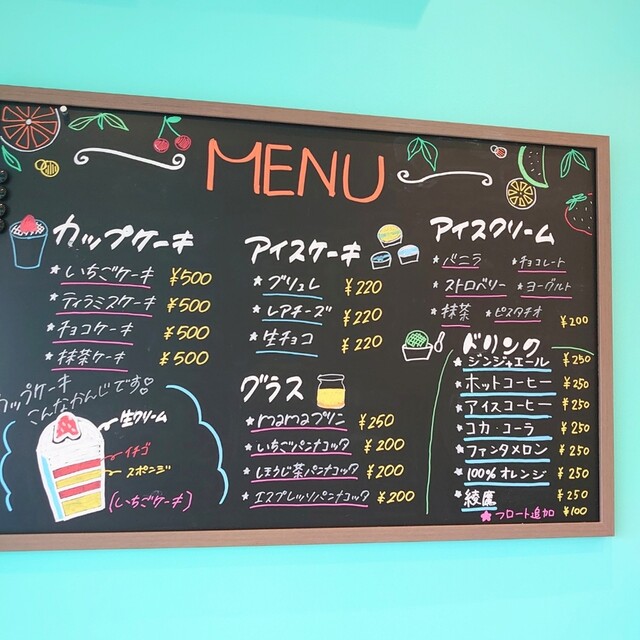 MENU
カップケーキ
いちごケーキ ¥500
ティラミスケーキ ¥500
チョコケーキ ¥500
抹茶ケーキ ¥500
カップケーキ
こんなかんじです♡
生クリーム
イチゴ
スポンジ
(いちごケーキ)
アイスケーキ
ブリュレ ¥220
レアチーズ ¥220
生チョコ ¥220
グラス
mamaプリン ¥250
いちごパンナコッタ ¥200
ほうじ茶パンナコッタ ¥200
エスプレッソパンナコッタ ¥200
アイスクリーム
バニラ チョコレート
ストロベリー ヨーグルト
抹茶 ピスタチオ ¥200
ドリンク
ジンジャエール ¥250
ホットコーヒー ¥250
アイスコーヒー ¥250
コカ・コーラ ¥250
ファンタメロン ¥250
100%オレンジ ¥250
綾鷹 ¥250
★フロート追加 ¥100